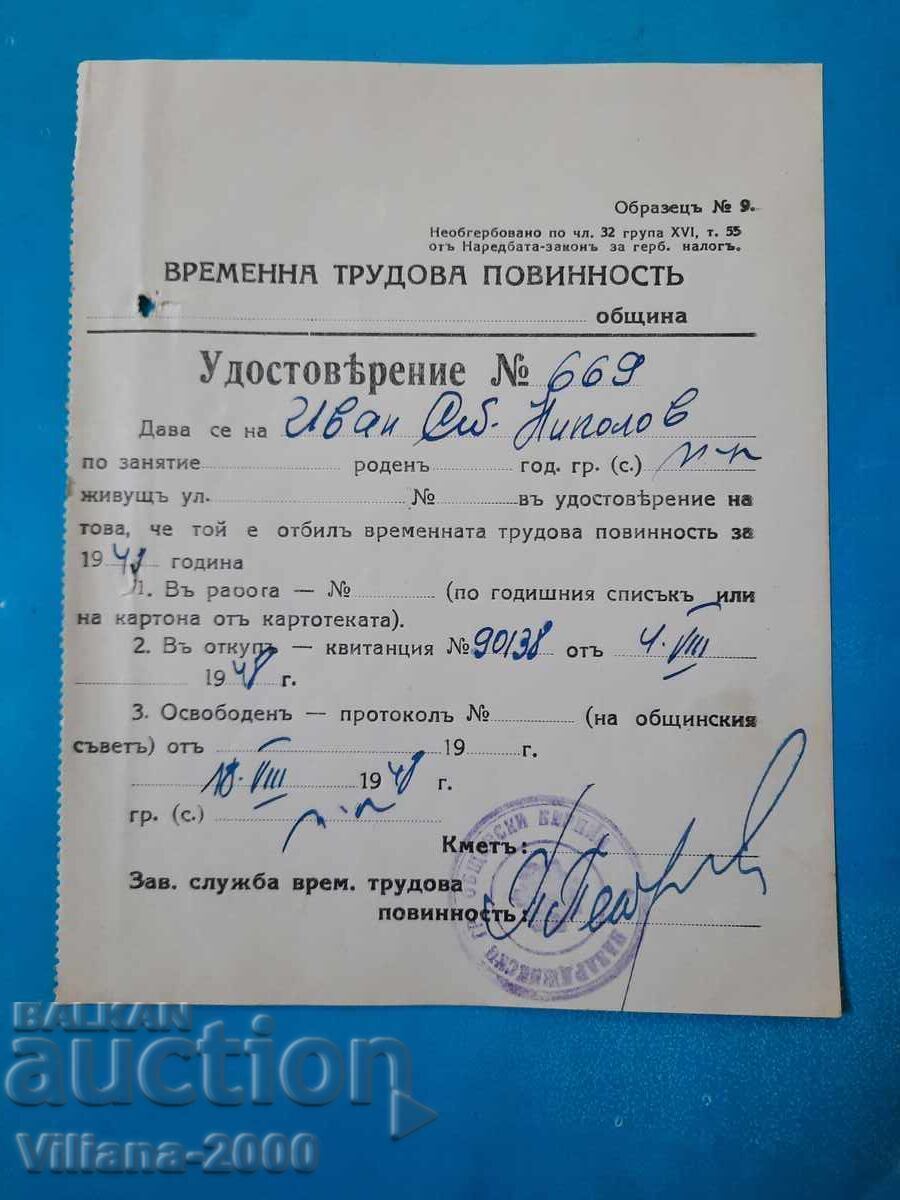 Образецъ № 9.
Необгербовано по чл. 32 група XVI, т. 55
отъ Наредбата-законъ за герб. налогъ.
ВРЕМЕННА ТРУДОВА ПОВИННОСТЬ
община
Удостовѣрение № 669
Дава се на Иван Ст. Николов
по занятие роденъ год. гр. (с.) п-п
живущъ ул. № въ удостовѣрение на
това, че той е отбилъ временната трудова повинность за
1948 година
1. Въ работа — № (по годишния списъкъ или
на картона отъ картотеката).
2. Въ откупъ — квитанция № 90138 отъ 4. VIII
1948 г.
3. Освободенъ — протоколъ № (на общинския
съветъ) отъ 19 г.
18. VIII 1948 г.
гр. (с.) п-п
Кметъ:
Зав. служба врем. трудова
повинность:
BALKAN
auction
Viliana-2000